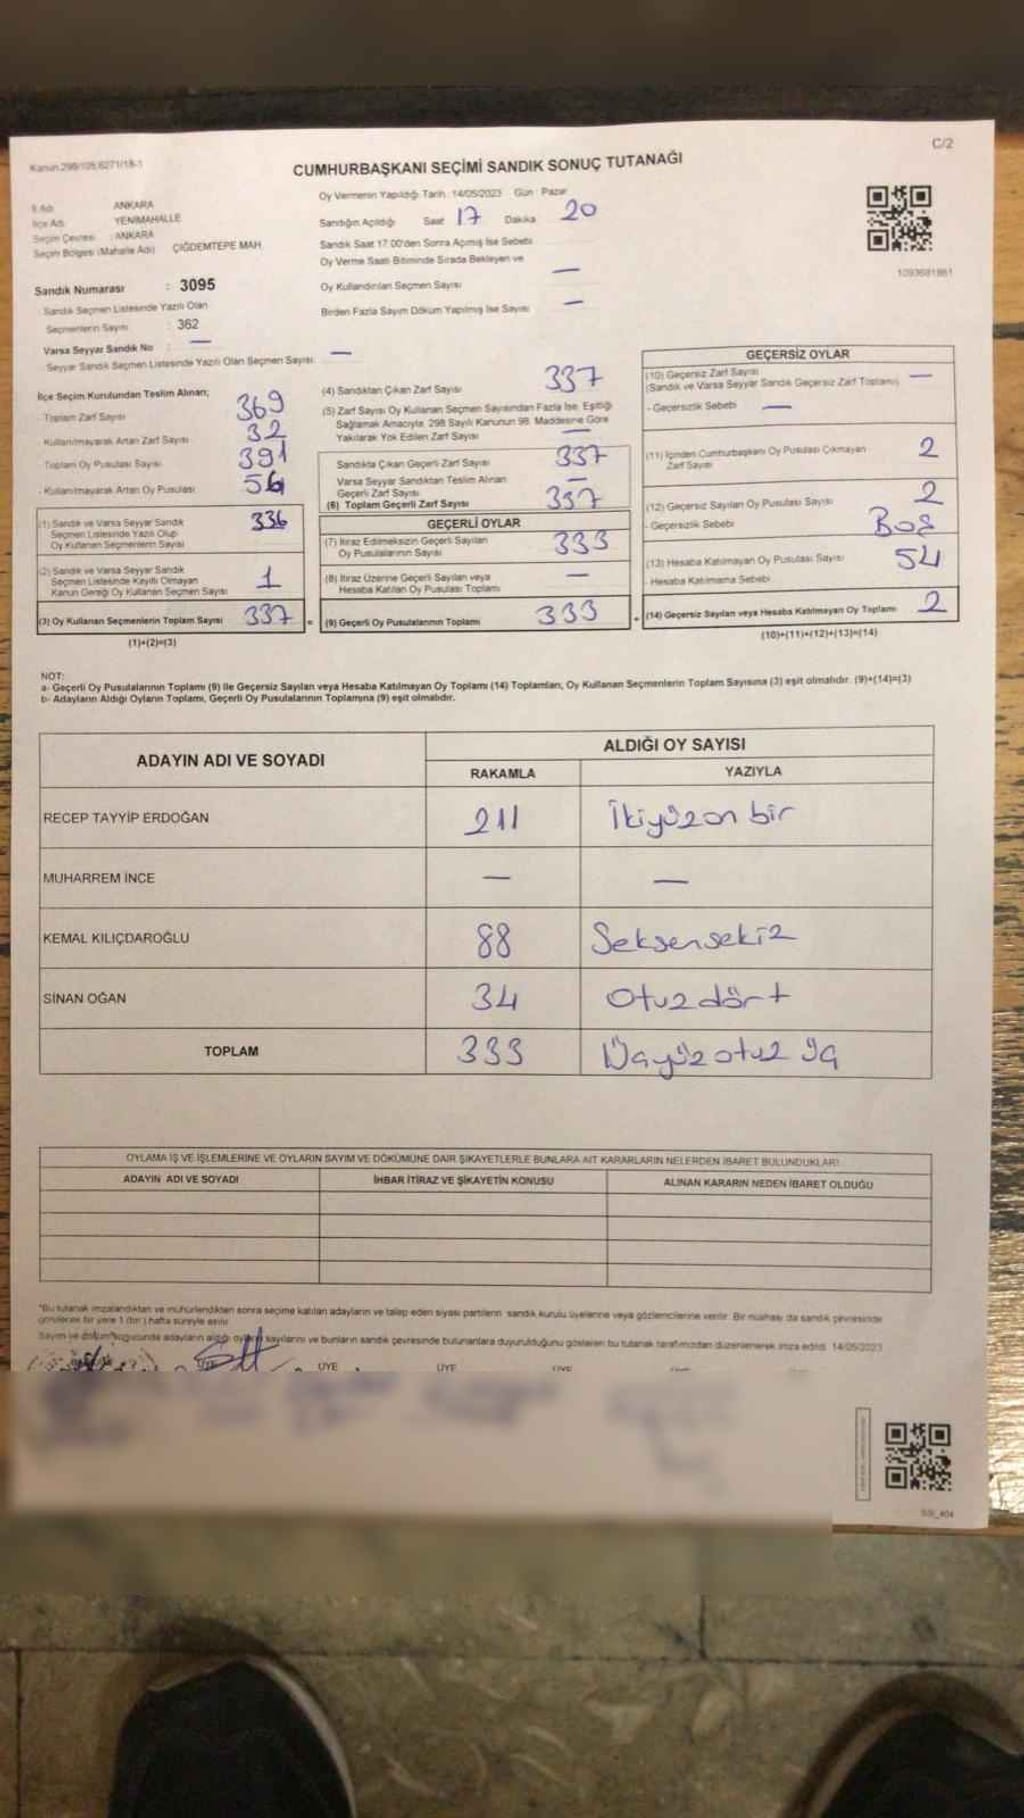 C/2
Kanun 298/105,6271/18-1
CUMHURBAŞKANI SEÇİMİ SANDIK SONUÇ TUTANAĞI
Oy Vermenin Yapıldığı Tarih : 14/05/2023 Gün : Pazar
İl Adı ANKARA
İlçe Adı YENİMAHALLE
Seçim Çevresi : ANKARA
Seçim Bölgesi (Mahalle Adı) ÇİĞDEMTEPE MAH.
Sandığın Açıldığı Saat 17 Dakika 20
Sandık Saat 17.00'den Sonra Açılmış İse Sebebi
Oy Verme Saati Bitiminde Sırada Bekleyen ve
Oy Kullandırılan Seçmen Sayısı —
Birden Fazla Sayım Döküm Yapılmış İse Sayısı —
1093681861
Sandık Numarası : 3095
Sandık Seçmen Listesinde Yazılı Olan
Seçmenlerin Sayısı : 362
Varsa Seyyar Sandık No : —
Seyyar Sandık Seçmen Listesinde Yazılı Olan Seçmen Sayısı: —
İlçe Seçim Kurulundan Teslim Alınan;
- Toplam Zarf Sayısı 369
- Kullanılmayarak Artan Zarf Sayısı 32
- Toplam Oy Pusulası Sayısı 391
- Kullanılmayarak Artan Oy Pusulası 54
(1) Sandık ve Varsa Seyyar Sandık
Seçmen Listesinde Yazılı Olup
Oy Kullanan Seçmenlerin Sayısı 336
(2) Sandık ve Varsa Seyyar Sandık
Seçmen Listesinde Kayıtlı Olmayan
Kanun Gereği Oy Kullanan Seçmen Sayısı 1
(3) Oy Kullanan Seçmenlerin Toplam Sayısı 337
(1)+(2)=(3)
(4) Sandıktan Çıkan Zarf Sayısı 337
(5) Zarf Sayısı Oy Kullanan Seçmen Sayısından Fazla İse, Eşitliği
Sağlamak Amacıyla, 298 Sayılı Kanunun 98. Maddesine Göre
Yakılarak Yok Edilen Zarf Sayısı —
Sandıkta Çıkan Geçerli Zarf Sayısı 337
Varsa Seyyar Sandıktan Teslim Alınan
Geçerli Zarf Sayısı —
(6) Toplam Geçerli Zarf Sayısı 337
GEÇERLİ OYLAR
(7) İtiraz Edilmeksizin Geçerli Sayılan
Oy Pusulalarının Sayısı 333
(8) İtiraz Üzerine Geçerli Sayılan veya
Hesaba Katılan Oy Pusulası Toplamı —
=
(9) Geçerli Oy Pusulalarının Toplamı 333
+
GEÇERSİZ OYLAR
(10) Geçersiz Zarf Sayısı —
(Sandık ve Varsa Seyyar Sandık Geçersiz Zarf Toplamı)
- Geçersizlik Sebebi —
(11) İçinden Cumhurbaşkanı Oy Pusulası Çıkmayan
Zarf Sayısı 2
(12) Geçersiz Sayılan Oy Pusulası Sayısı 2
- Geçersizlik Sebebi Boş
(13) Hesaba Katılmayan Oy Pusulası Sayısı 54
- Hesaba Katılmama Sebebi
(14) Geçersiz Sayılan veya Hesaba Katılmayan Oy Toplamı 2
(10)+(11)+(12)+(13)=(14)
NOT:
a- Geçerli Oy Pusulalarının Toplamı (9) ile Geçersiz Sayılan veya Hesaba Katılmayan Oy Toplamı (14) Toplamları, Oy Kullanan Seçmenlerin Toplam Sayısına (3) eşit olmalıdır. (9)+(14)=(3)
b- Adayların Aldığı Oyların Toplamı, Geçerli Oy Pusulalarının Toplamına (9) eşit olmalıdır.
ADAYIN ADI VE SOYADI
ALDIĞI OY SAYISI
RAKAMLA YAZIYLA
RECEP TAYYİP ERDOĞAN 211 İkiyüzon bir
MUHARREM İNCE — —
KEMAL KILIÇDAROĞLU 88 Seksensekiz
SİNAN OĞAN 34 Otuzdört
TOPLAM 333 Üçyüzotuz üç
OYLAMA İŞ VE İŞLEMLERİNE VE OYLARIN SAYIM VE DÖKÜMÜNE DAİR ŞİKAYETLERLE BUNLARA AİT KARARLARIN NELERDEN İBARET BULUNDUKLARI
ADAYIN ADI VE SOYADI İHBAR İTİRAZ VE ŞİKAYETİN KONUSU ALINAN KARARIN NEDEN İBARET OLDUĞU
*Bu tutanak imzalandıktan ve mühürlendikten sonra seçime katılan adayların ve talep eden siyasi partilerin sandık kurulu üyelerine veya gözlemcilerine verilir. Bir nüshası da sandık çevresinde
görülecek bir yere 1 (bir) hafta süreyle asılır.
Sayım ve döküm sonucunda adayların aldığı oyların sayılarını ve bunların sandık çevresinde bulunanlara duyurulduğunu gösteren bu tutanak tarafımızdan düzenlenerek imza edildi. 14/05/2023
ÜYE ÜYE ÜYE